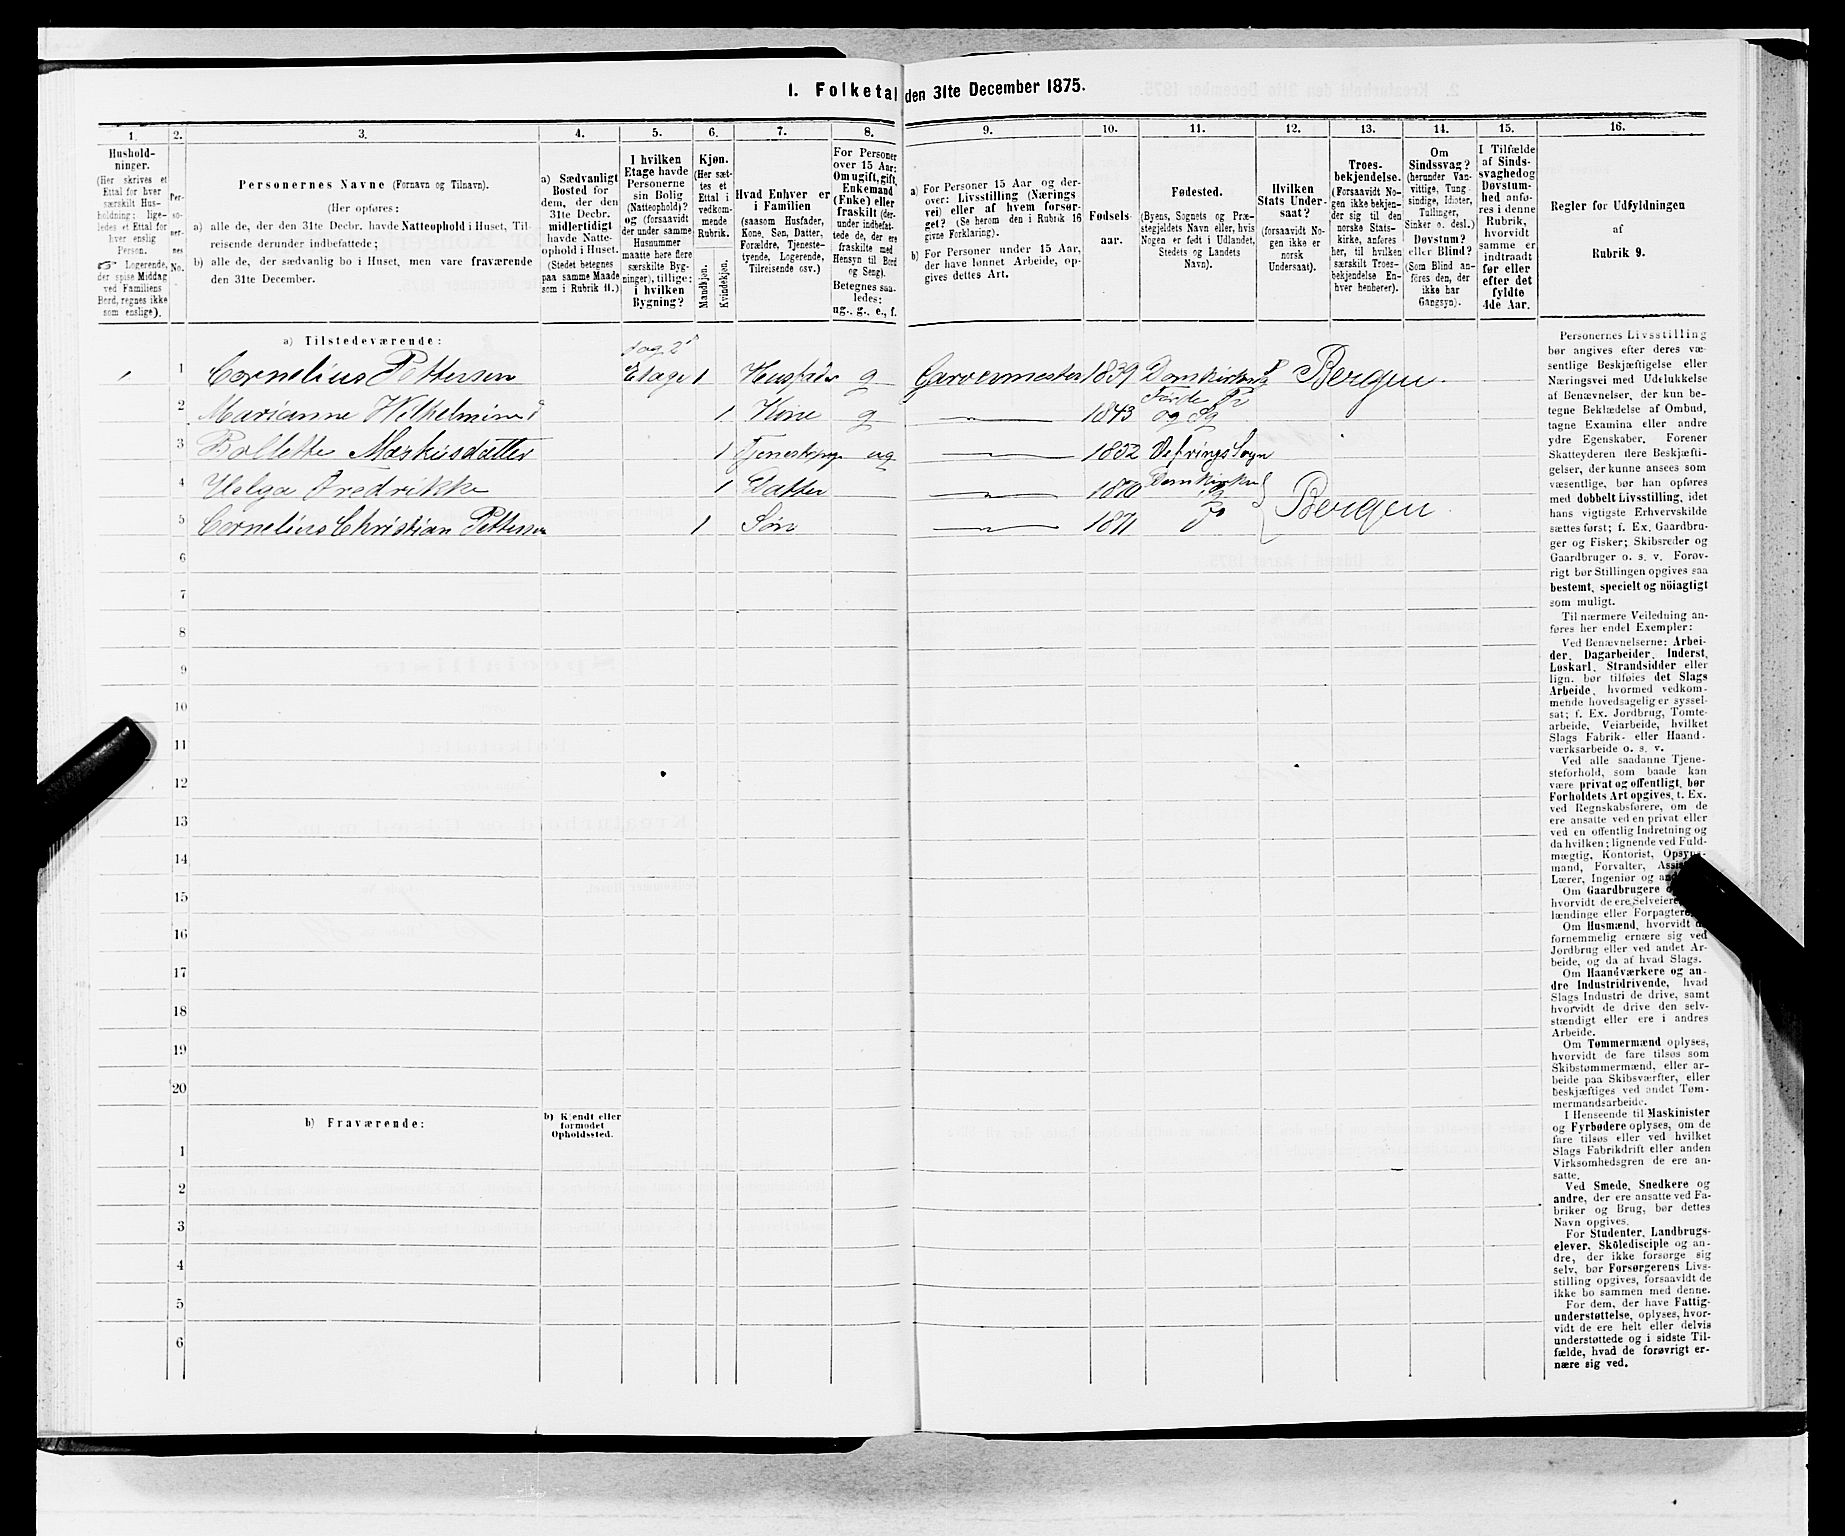 1. Folketal den 31te December 1875.
1.
2.
3.
4.
5.
6.
7.
8.
9.
10.
11.
12.
13.
14.
15.
16.
Hushold-
ninger.
(Her skrives et
Ettal for hver
særskilt Hus-
holdning; lige-
ledes et Ettal for
hver enslig
Person.
☞ Logerende,
der spise Middag
ved Familiens
Bord, regnes ikke
som enslige).
Per-
so-
ner-
nes
No.
Personernes Navne (Fornavn og Tilnavn).
(Her opføres:
a) alle de, der den 31te Decbr. havde Natteophold i Huset, Til-
reisende derunder indbefattede;
b) alle de, der sædvanlig bo i Huset, men vare fraværende
den 31te December.
a) Sædvanligt
Bosted for
dem, der den
31te Decbr.
midlertidigt
havde Natte-
ophold i Huset.
(Stedet betegnes
paa samme Maade
som i Rubrik 11.)
I hvilken
Etage havde
Personerne
sin Bolig
(Natteophold)?
og (forsaavidt
der under samme
Husnummer
maatte høre flere
særskilte Byg-
ninger), tillige:
i hvilken
Bygning?
Kjøn.
(Her sæt-
tes et
Ettal i
vedkom-
mende
Rubrik.
Mandkjøn.
Kvindekjøn.
Hvad Enhver er
i Familien
(saasom Husfader,
Kone, Søn, Datter,
Forældre, Tjeneste-
tyende, Logerende,
Tilreisende osv.)
For Personer
over 15 Aar:
Om ugift, gift,
Enkemand
(Enke) eller
fraskilt (der-
under indbefat-
tede de, der ere
fraskilte med
Hensyn til Bord
og Seng).
Betegnes saa-
ledes:
ug., g., e., f.
a) For Personer 15 Aar og der-
over: Livsstilling (Nærings
vei) eller af hvem forsør-
get? (Se herom den i Rubrik 16
givne Forklaring).
b) For Personer under 15 Aar,
der have lønnet Arbeide, op-
gives dettes Art.
Fødsels-
aar.
Fødested.
(Byens, Sognets og Præ-
stegjeldets Navn eller, hvis
Nogen er født i Udlandet,
Stedets og Landets
Navn).
Hvilken
Stats Under-
saat?
(forsaavidt No-
gen ikke er
norsk
Undersaat).
Troes-
bekjendelse.
(Forsaavidt No-
gen ikke bekjen-
der sig til den
norske Stats-
kirke, anføres
her, til hvilken
særskilt Troes-
bekjendelse En-
hver henhører).
Om
Sindssvag?
(herunder Van-
vittige, Tung-
sindige, Idioter,
Tullinger,
Sinker o. desl.)
Døvstum?
eller Blind?
(Som Blind an-
føres den, der
ikke har
Gangsyn).
I Tilfælde
af Sinds-
svaghed og
Døvstum-
hed anfø-
res i denne
Rubrik,
hvorvidt
samme er
indtraadt
før eller
efter det
fyldte
4de Aar.
Regler for Udfyldningen
af
Rubrik 9.
a) Tilstedeværende:
1 og 2
1 Cornelius Pettersen Etage 1 Husfader g Garvermester 1839 Domkirken Bergen.
2 Marianne Wilhelmine 1 Kone g 1843 Førde og
3 Bollette Maskusdatter 1 ug 1852 Sogn
4 Helga Fredrikke 1 Datter 1870 Domkirken Bergen
5 Cornelius Christian Pettersen 1 Søn 1871
6
7
8
9
10
11
12
13
14
15
16
17
18
19
20
b) Fraværende:
b) Kjendt eller
formodet
Opholdssted.
1
2
3
4
5
6
Personernes Livsstilling
bør angives efter deres væ-
sentlige Beskjæftigelse eller
Næringsvei med Udelukkelse
af Benævnelser, der kun be-
tegne Beklædelse af Ombud,
tagne Examina eller andre
ydre Egenskaber. Forener
Skatteyderen flere Beskjæfti-
gelser, der kunne ansees som
væsentlige, bør han opføres
med dobbelt Livsstilling, idet
hans vigtigste Erhvervskilde
sættes først; f. Ex. Gaardbru-
ger og Fisker; Skibsreder og
Gaardbruger o. s. v. Forøv-
rigt bør Stillingen opgives saa
bestemt, specielt og nöiagtigt
som muligt.
Til nærmere Veiledning an-
føres her endel Exempler:
Ved Benævnelserne: Arbei-
der, Dagarbeider, Inderst,
Løskarl, Strandsidder eller
lign. bør tilføies det Slags
Arbeide, hvormed vedkom-
mende hovedsagelig er syssel-
sat; f. Ex. Jordbrug, Tomte-
arbeide, Veiarbeide, hvilket
Slags Fabrik- eller Haand-
værksarbeide o. s. v.
Ved alle saadanne Tjene-
steforhold, som baade kan
være privat og offentligt, bør
Forholdets Art opgives, t. Ex.
ved Regnskabsførere, om de
ere ansatte ved en privat eller
ved en offentlig Indretning og
da hvilken; lignende ved Fuld-
mægtig, Kontorist, Opsyns-
mand, Forvalter,
Lærer, Ingeniør og
Om Gaardbrugere
hvorvidt de ere Selveiere,
lændinge eller Forpagtere.
Om Husmænd, hvorvidt de
fornemmelig ernære sig ved
Jordbrug eller ved andet Ar-
beide, og da af hvad Slags.
Om Haandværkere og an-
dre Industridrivende, hvad
Slags Industri de drive, samt
hvorvidt de drive den selv-
stændigt eller ere i andres
Arbeide.
Om Tømmermænd oplyses,
hvorvidt de fare tilsøs som
Skibstømmermænd, eller ar-
beide paa Skibsværfter, eller
beskjæftiges ved andet Tøm-
mermandsarbeide.
I Henseende til Maskinister
og Fyrbødere oplyses, om de
fare tilsøs eller ved hvilket
Slags Fabrikdrift eller anden
Virksomhedsgren de ere an-
satte.
Ved Smede, Snedkere og
andre, der ere ansatte ved Fa-
briker og Brug, bør dettes
Navn opgives.
For Studenter, Landbrugs-
elever, Skoledisciple og an-
dre, der ikke forsørge sig
selv, bør Forsørgerens Livs-
stilling opgives, forsaavidt de
ikke bo sammen med denne.
For dem, der have Fattig-
understøttelse, oplyses, hvor-
vidt de ere helt eller delvis
understøttede og i sidste Til-
fælde, hvad de forøvrigt er-
nære sig ved.